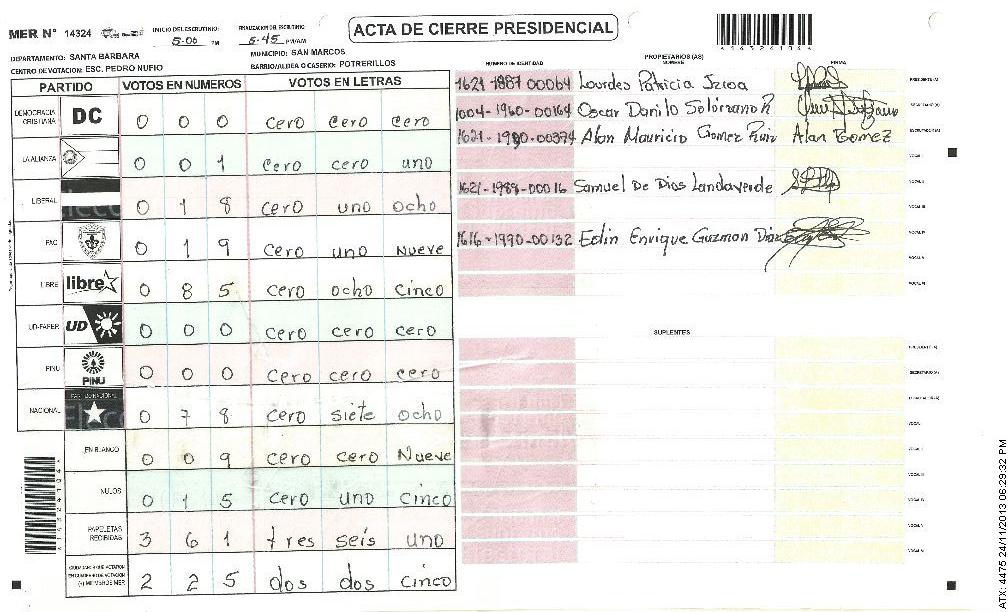 MER N° 14324
INICIO DEL ESCRUTINIO: 5:00 PM
FINALIZACION DEL ESCRUTINIO 5:45 PM/AM
ACTA DE CIERRE PRESIDENCIAL
DEPARTAMENTO: SANTA BARBARA
MUNICIPIO: SAN MARCOS
CENTRO DE VOTACION: ESC. PEDRO NUFIO
BARRIO/ALDEA O CASERIO: POTRERILLOS
PARTIDO VOTOS EN NUMEROS VOTOS EN LETRAS
DEMOCRACIA CRISTIANA DC 0 0 0 cero cero cero
LA ALIANZA 0 0 1 cero cero uno
LIBERAL 0 1 8 cero uno ocho
PAC 0 1 9 cero uno Nueve
LIBRE libre 0 8 5 cero ocho cinco
UD-FAPER UD 0 0 0 cero cero cero
PINU PINU 0 0 0 cero cero cero
NACIONAL 0 7 8 cero siete ocho
EN BLANCO 0 0 9 cero cero Nueve
NULOS 0 1 5 cero uno cinco
PAPELETAS RECIBIDAS 3 6 1 tres seis uno
2 2 5 dos dos cinco
NUMERO DE IDENTIDAD
PROPIETARIOS (AS)
NOMBRE
FIRMA
1621-1987 00064 Lourdes Patricia
PRESIDENTE (A)
1004-1960-00164 Oscar Danilo Solórzano R
SECRETARIO (A)
1621-1980-00374 Alan Mauricio Gomez Ruiz Alan Gomez
ESCRUTADOR (A)
VOCAL I
1621-1988-00016 Samuel De Dios Landaverde
VOCAL II
VOCAL III
1616-1990-00132 Edin Enrique Guzman Diaz
VOCAL IV
VOCAL V
VOCAL VI
SUPLENTES
PRESIDENTE (A)
SECRETARIO (A)
ESCRUTADOR (A)
VOCAL I
VOCAL II
VOCAL III
VOCAL IV
VOCAL V
VOCAL VI
ATX: 4475 24/11/2013 06:29:32 PM